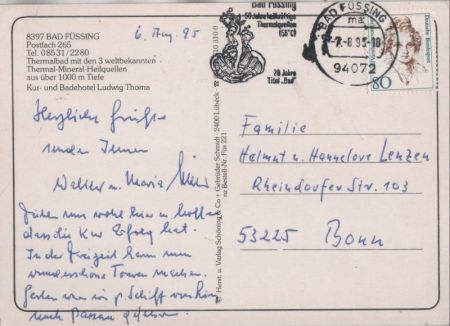 8397 BAD FÜSSING
Postfach 265
Tel. 08531/2280
Thermalbad mit den 3 weltbekannten
Thermal-Mineral-Heilquellen
aus über 1000 m Tiefe
Kur- und Badehotel Ludwig Thoma
6. Aug. 95
Bad Füssing
50 Jahre heilkräftige
Thermalquellen
(56°C)
20 Jahre
Titel „Bad“
BAD FÜSSING
-7.-8.95-
94072
Deutsche Bundespost
80
Herzliche Grüße
Walter u. Maria
Fühlen uns wohl hier u. hoffen
dass die Kur Erfolg hat.
In der Freizeit kann man
wunderschöne Touren machen.
Gestern waren wir p. Schiff
nach Passau gefahren.
Herst. u. Verlag Schöning & Co + Gebrüder Schmidt · 2400 Lübeck
Bestell-Nr. Füs 221
Familie
Helmut u. Hannelore Lenzen
Rheindorfer Str. 103
53225 Bonn